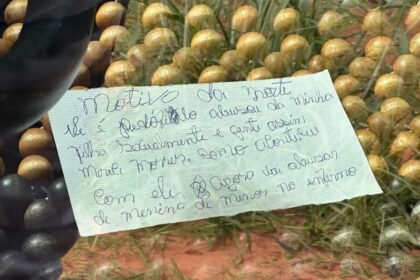 Motivo da morte
ele é pedofilo abusou da minha
filha sexualmente e gente assim
merece morrer, como aconteceu
com ele agora vai abusar
de menina de menor no inferno